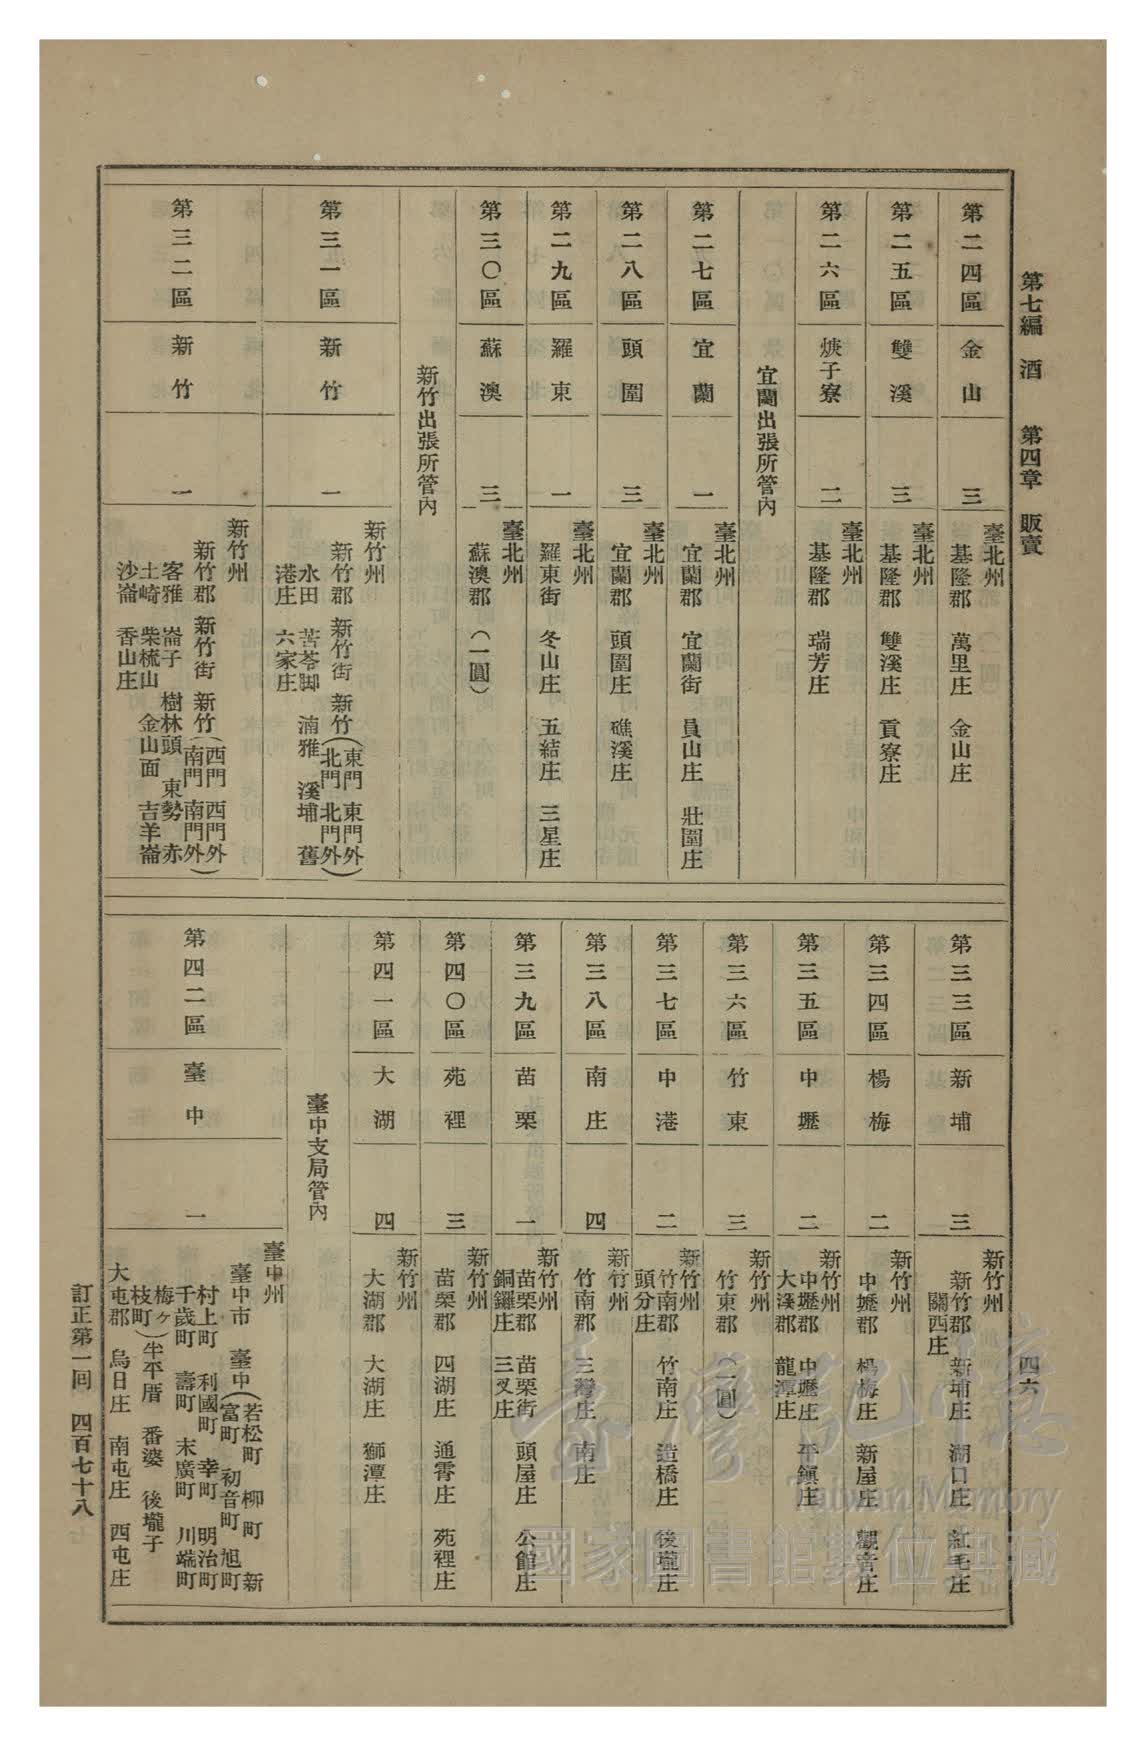 第七編　酒　　第四章　販賣
四六
第二四區
金山
三
臺北州
基隆郡　萬里庄　金山庄
第二五區
雙溪
三
臺北州
基隆郡　雙溪庄　貢寮庄
第二六區
㷫子寮
二
臺北州
基隆郡　瑞芳庄
宜蘭出張所管內
第二七區
宜蘭
一
臺北州
宜蘭郡　宜蘭街　員山庄　壯圍庄
第二八區
頭圍
三
臺北州
宜蘭郡　頭圍庄　礁溪庄
第二九區
羅東
一
臺北州
羅東街　冬山庄　五結庄　三星庄
第三〇區
蘇澳
三
臺北州
蘇澳郡　（一圓）
新竹出張所管內
第三一區
新竹
一
新竹州
新竹郡　新竹街　新竹（東門　東門外
北門　北門外）
水田　苦苓脚　湳雅　溪埔　舊
港庄　六家庄
第三二區
新竹
一
新竹州
新竹郡　新竹街　新竹（西門　西門外
南門　南門外）
客雅　崙子　樹林頭　東勢　赤
土崎　柴梳山　金山面　吉羊崙
沙崙　香山庄
第三三區
新埔
三
新竹州
新竹郡　新埔庄　湖口庄　紅毛庄
關西庄
第三四區
楊梅
二
新竹州
中壢郡　楊梅庄　新屋庄　觀音庄
第三五區
中壢
二
新竹州
中壢郡　中壢庄　平鎮庄
大溪郡　龍潭庄
第三六區
竹東
三
新竹州
竹東郡　（一圓）
第三七區
中港
二
新竹州
竹南郡　竹南庄　造橋庄　後壠庄
頭分庄
第三八區
南庄
四
新竹州
竹南郡　三灣庄　南庄
第三九區
苗栗
一
新竹州
苗栗郡　苗栗街　頭屋庄　公館庄
銅鑼庄　三叉庄
第四〇區
苑裡
三
新竹州
苗栗郡　四湖庄　通霄庄　苑裡庄
第四一區
大湖
四
新竹州
大湖郡　大湖庄　獅潭庄
臺中支局管內
第四二區
臺中
一
臺中州
臺中市　臺中（若松町　柳町　新
富町　初音町　旭町
村上町　利國町　幸町　明治町
千歲町　壽町　末廣町　川端町
梅ヶ
枝町）牛平厝　番婆　後壠子
大屯郡　烏日庄　南屯庄　西屯庄
訂正第一回　四百七十八
臺灣記憶
Taiwan Memory
國家圖書館數位典藏